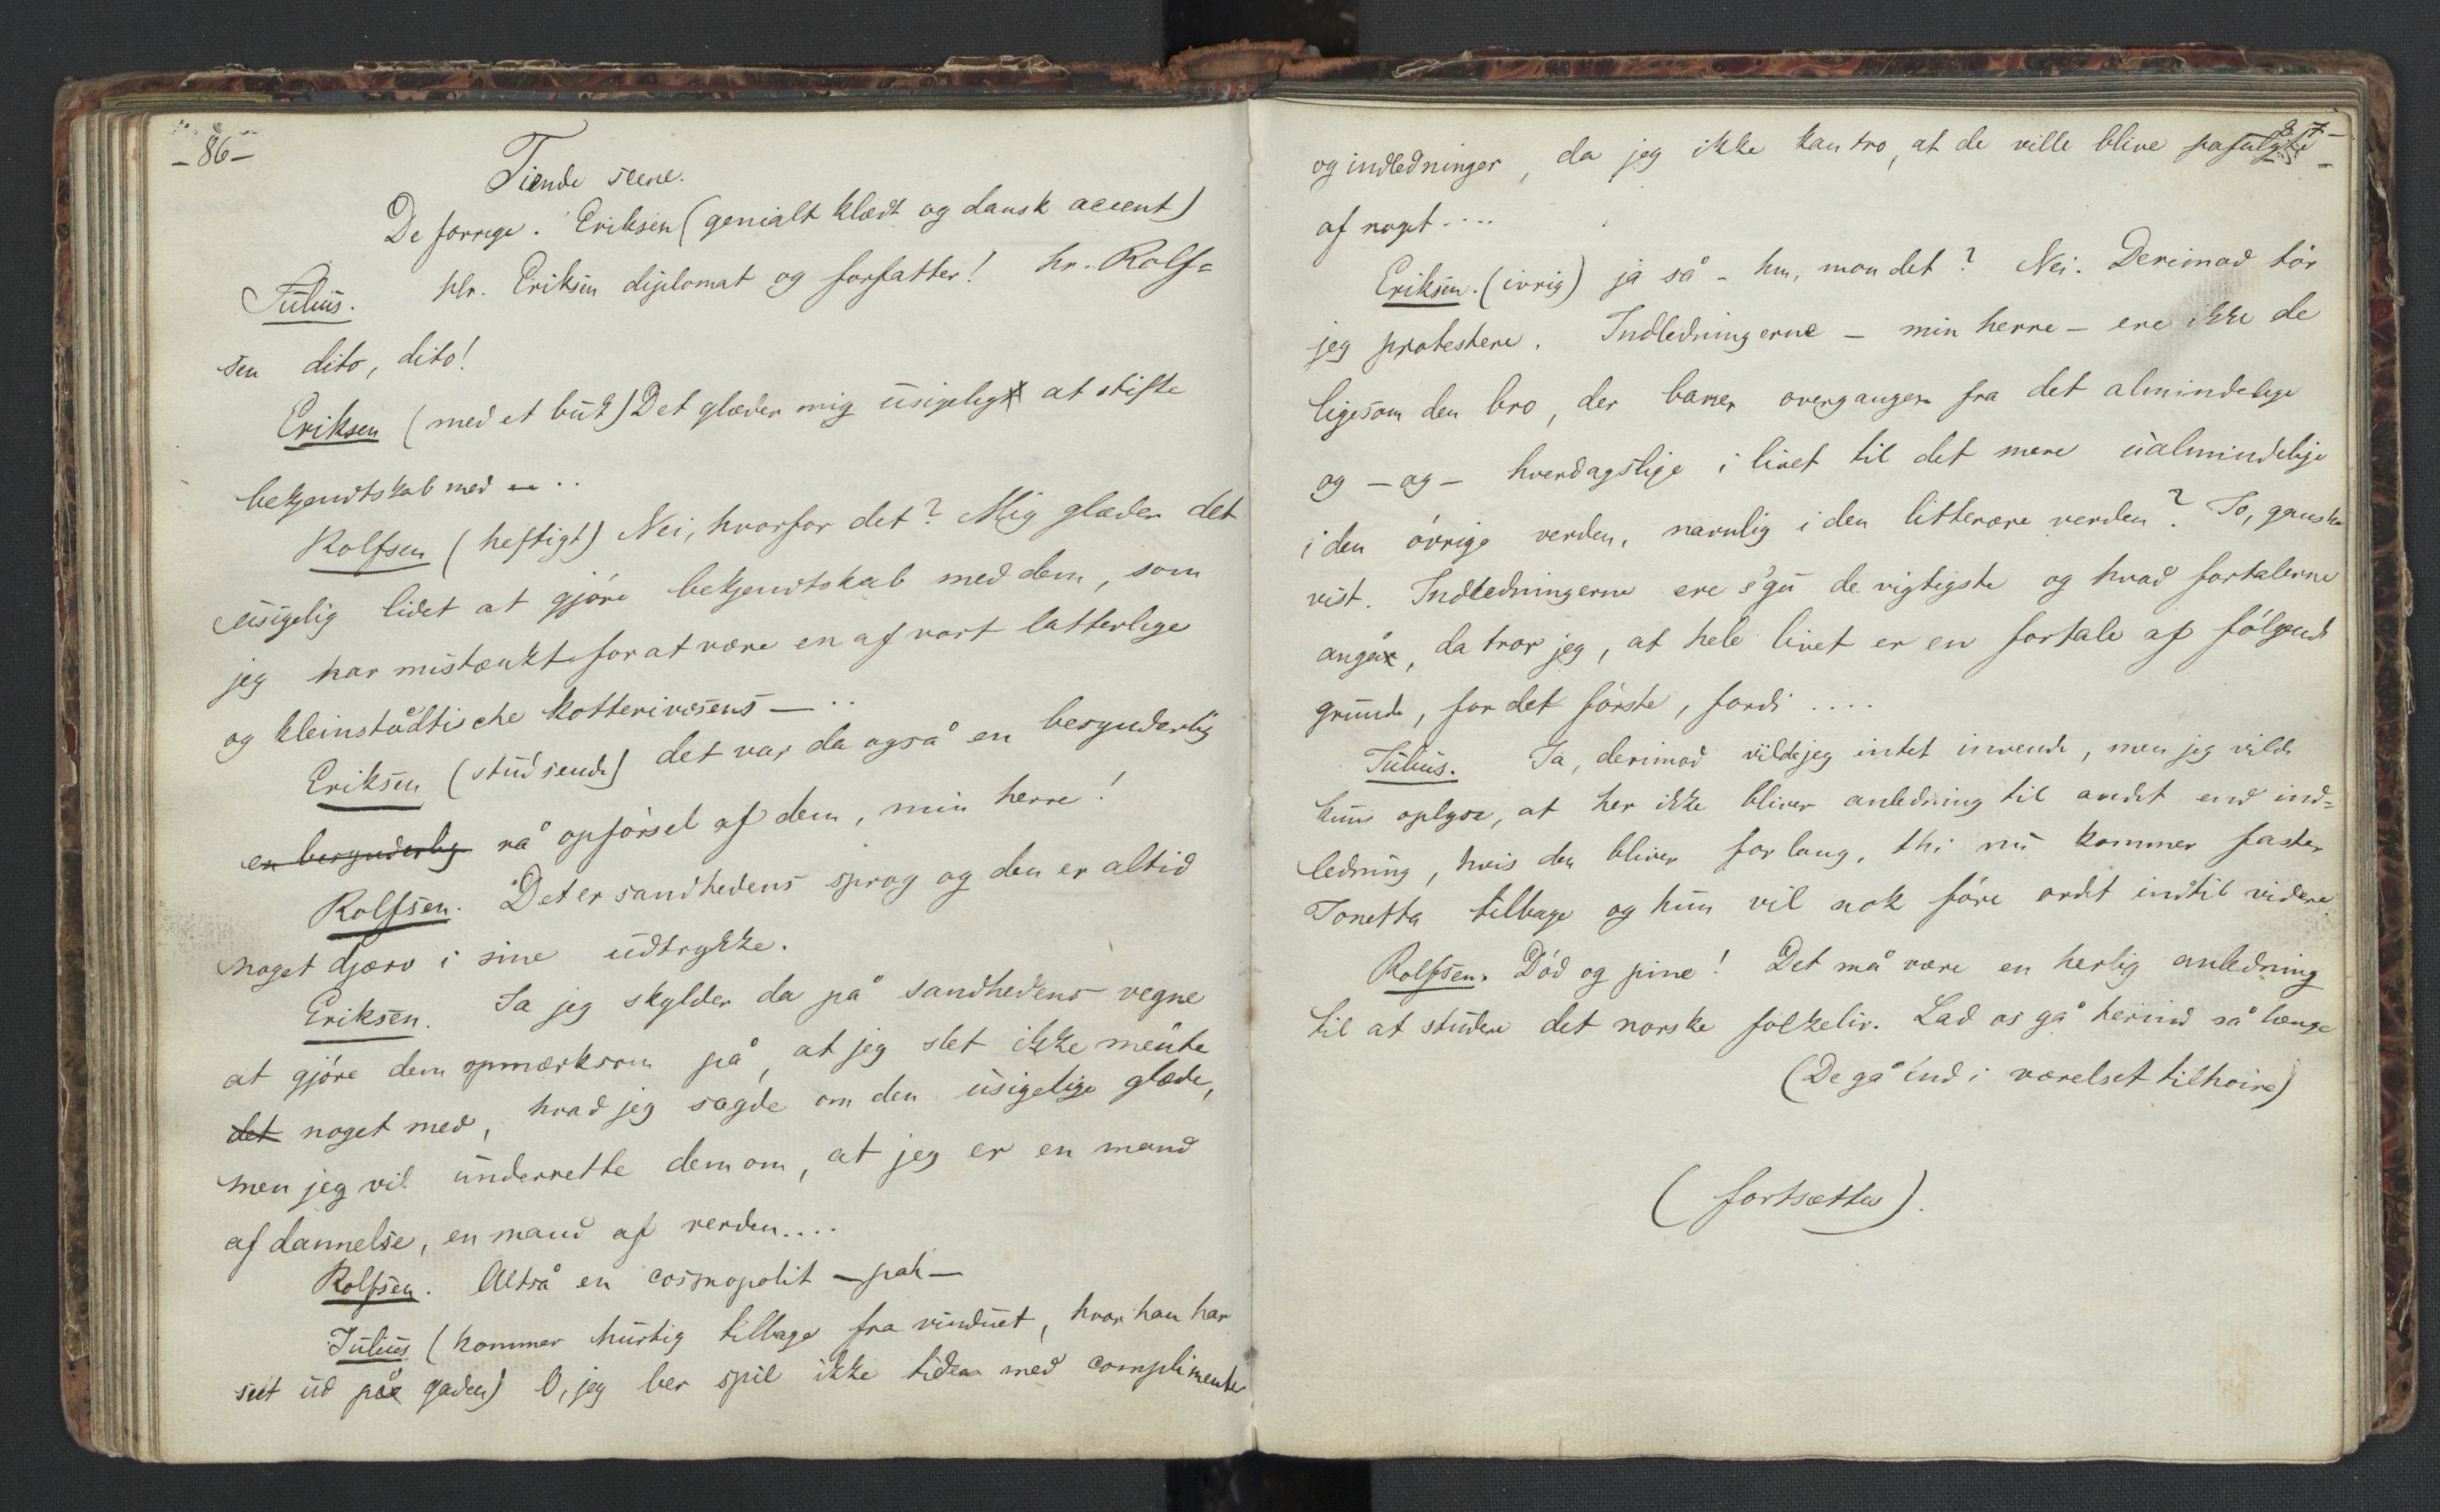 - 86 -
Tiende scene.
De forrige. Eriksen (genialt klædt og dansk accent)
Julius. Hr. Eriksen diplomat og forfatter! hr. Rolf=
sen dito, dito!
Eriksen (med et buk) Det glæder mig usigeligt at stifte
bekjendtskab med — ..
Rolfsen (heftigt) Nei, hvorfor det? Mig glæder det
usigelig lidet at gjöre bekjendtskab med dem, som
jeg har mistænkt for at være en af vort latterlige
og kleinstädtische kotterivæsens — ..
Eriksen (studsende) det var da også en besynderlig
en besynderlig rå opförsel af dem, min herre!
Rolfsen. Det er sandhedens sprog og den er altid
noget djærv i sine udtrykke.
Eriksen. Ja jeg skylder da på sandhedens vegne
at gjöre dem opmærksom på, at jeg slet ikke mente
det noget med, hvad jeg sagde om den usigelige glæde,
men jeg vil underrette dem om, at jeg er en mand
af dannelse, en mand af verden....
Rolfsen. Altså en cosmopolit — pah —
Julius (kommer hurtig tilbage fra vinduet, hvor han har
seet ud på gaden) O, jeg ber spil ikke tiden med complimenter
87 -
og indledninger, da jeg ikke kan tro, at de ville blive påfulgte
af noget....
Eriksen. (ivrig) ja så - hm, mon det? Nei. Derimod tör
jeg protestere. Indledningerne — min herre — ere ikke de
ligesom den bro, der baner overgangen fra det almindelige
og — og — hverdagslige i livet til det mere ualmindelige
i den övrige verden, navnlig i den litterære verden? Jo, ganske
vist. Indledningerne ere s'gu de vigtigste og hvad fortalerne
angår, da tror jeg, at hele livet er en fortale af fölgende
grunde, for det förste, fordi ....
Julius. Ja, derimod vilde jeg intet invende, men jeg vilde
kun oplyse, at her ikke bliver anledning til andet end ind=
ledning, hvis den bliver for lang, thi nu kommer faster
Tonetta tilbage og hun vil nok före ordet indtil videre
Rolfsen. Död og pine! Det må være en herlig anledning
til at studere det norske folkeliv. Lad os gå herind så længe
(De gå ind i værelset tilhoire)
(fortsættes).